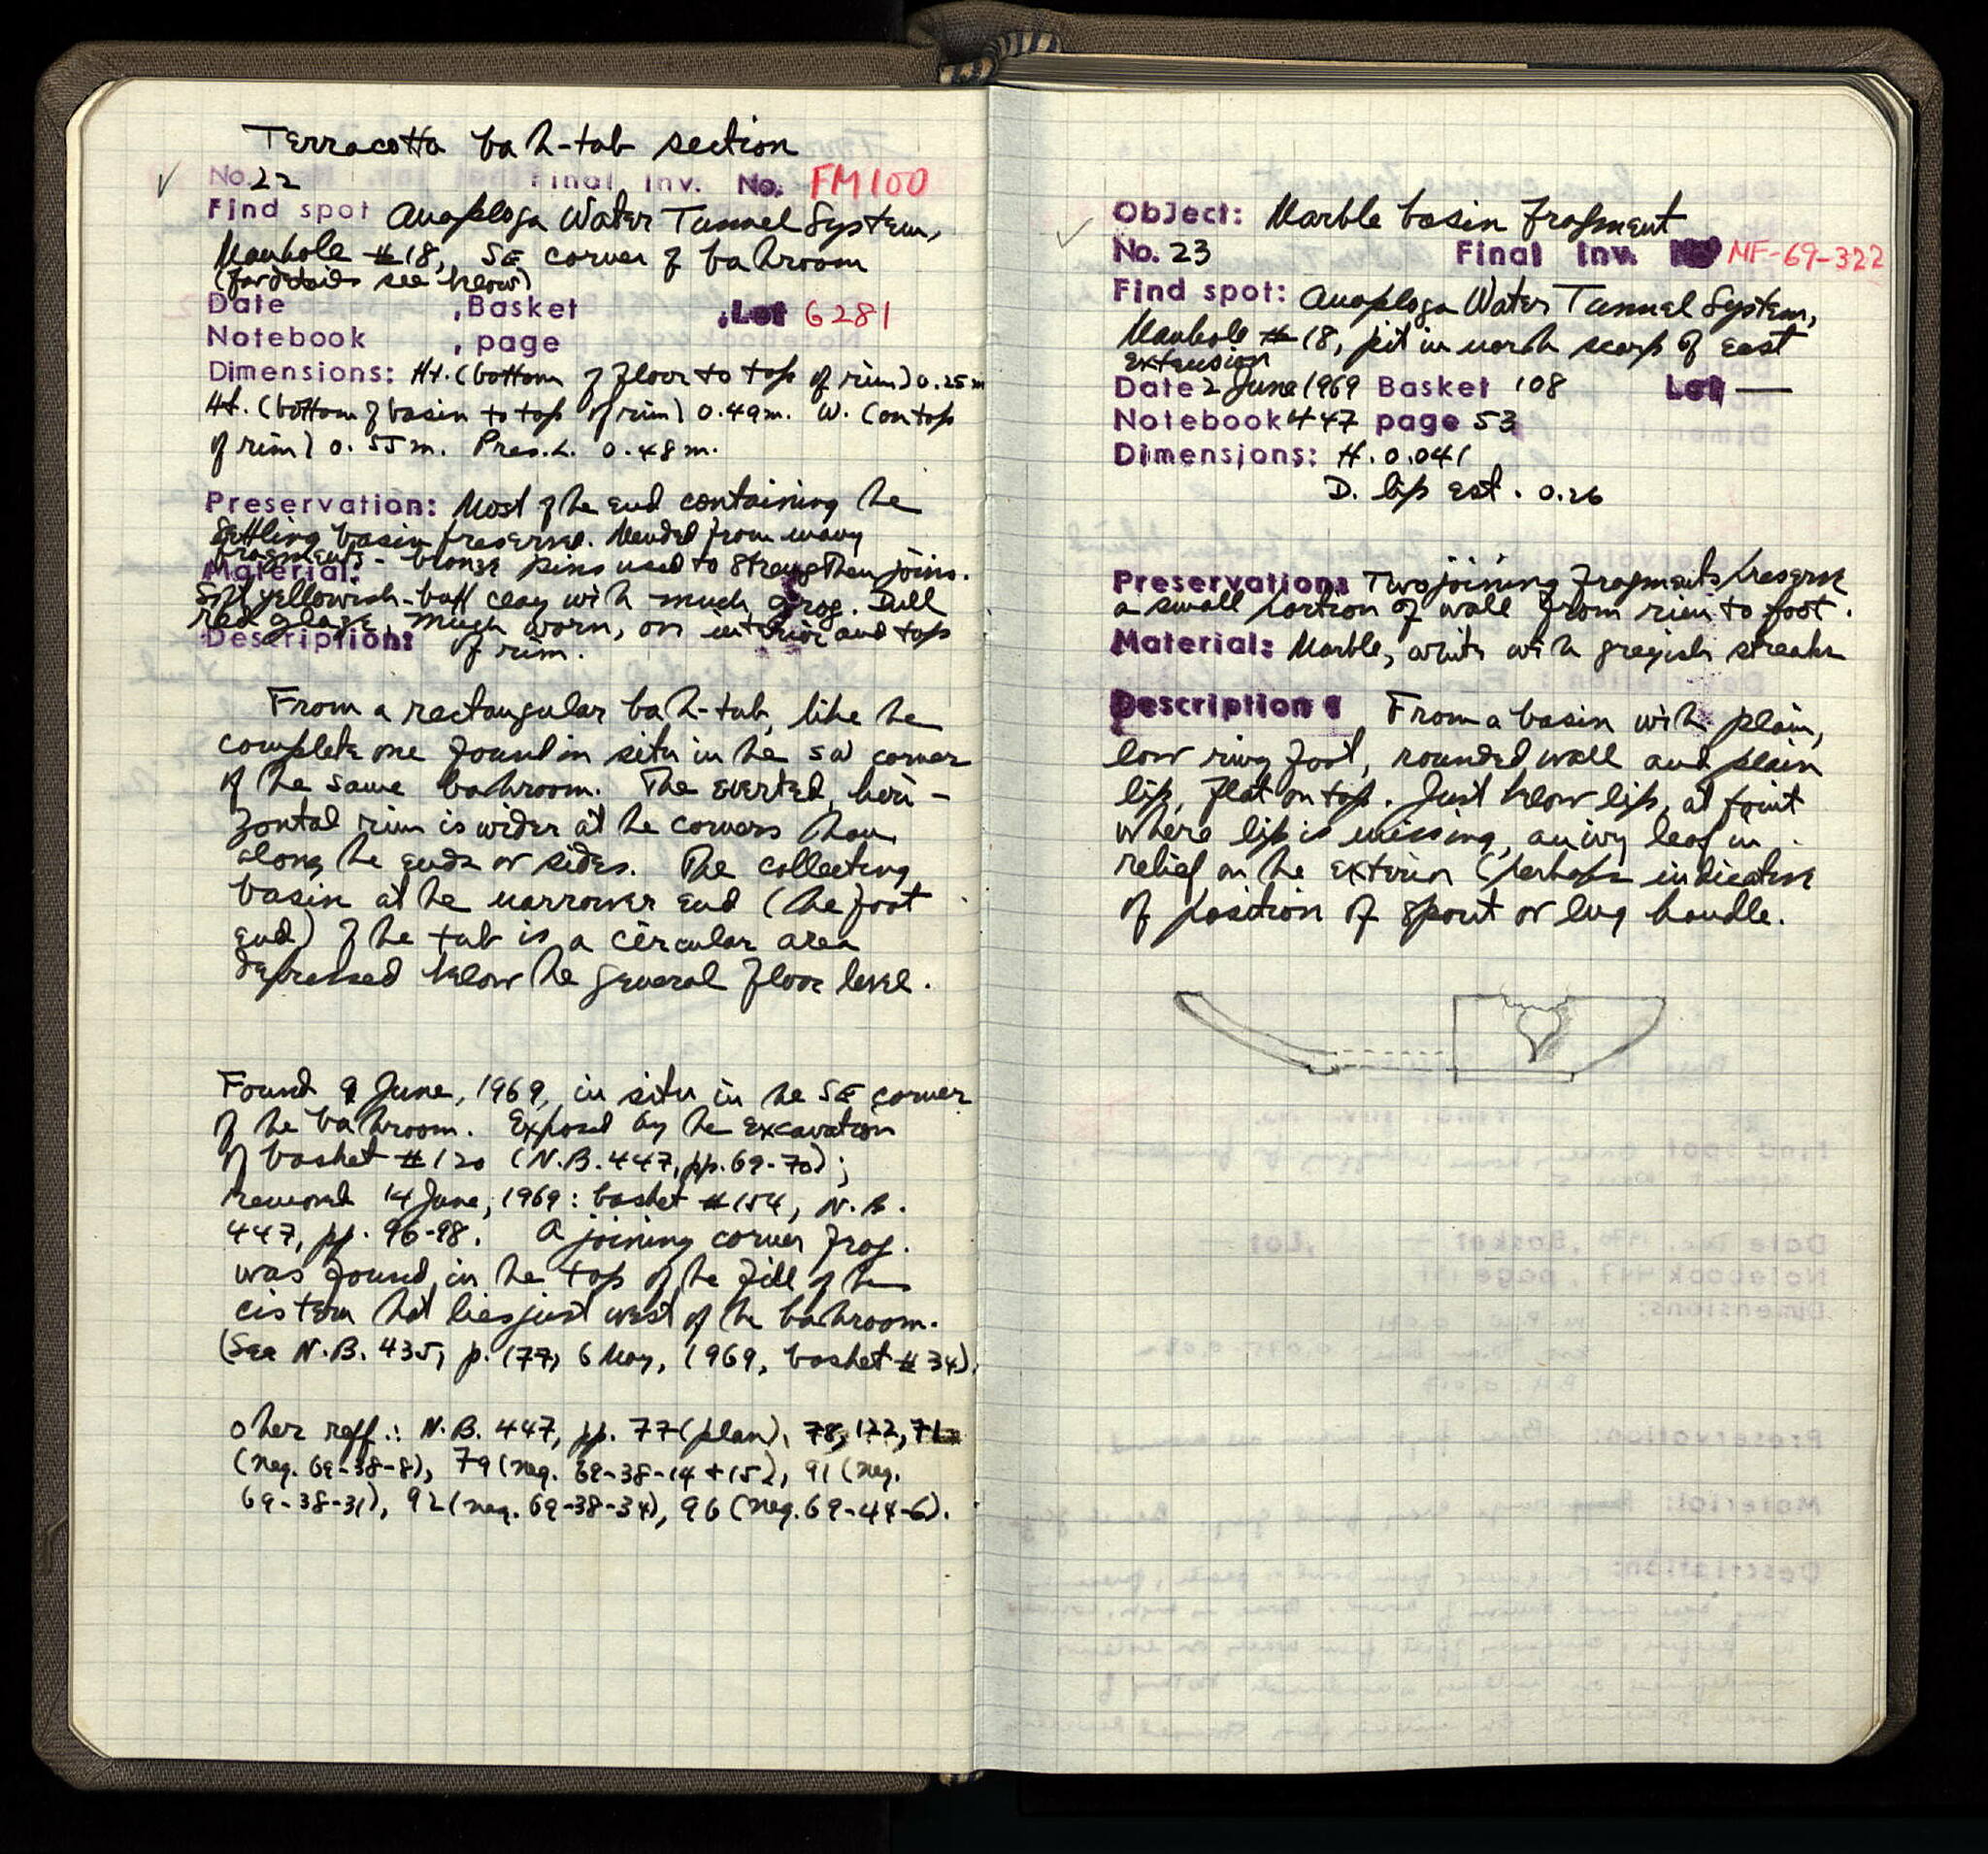 Terracotta bath-tub section
No. 22 Final Inv. No. FM100
Find spot Anaploga Water Tunnel System,
Manhole #18, SE corner of bathroom
(for details see below)
Date , Basket , Lot 6281
Notebook , page
Dimensions: Ht. (bottom of floor to top of rim) 0.25m
Ht. (bottom of basin to top of rim) 0.49m. W. (on top
of rim) 0.55m. Pres. L. 0.48m.
Preservation: Most of the end containing the
settling basin preserved. Mended from many
fragments - bronze pins used to strengthen joins.
Material:
Soft yellowish-buff clay with much grog. Dull
red glaze, much worn, on interior and top
Description: of rim.
From a rectangular bath-tub, like the
complete one found in situ in the SW corner
of the same bathroom. The everted, hori-
zontal rim is wider at the corners than
along the ends or sides. The collecting
basin at the narrower end (the foot
end) of the tub is a circular area
depressed below the general floor level.
Found 9 June, 1969, in situ in the SE corner
of the bathroom. Exposed by the excavation
of basket #120 (N.B. 447, pp. 69-70);
removed 14 June, 1969: basket #154, N.B.
447, pp. 96-98. A joining corner frag.
was found in the top of the fill of the
cistern that lies just west of the bathroom.
(See N.B. 435, p. 177, 6 May, 1969, basket #34).
Other reff.: N.B. 447, pp. 77 (plan), 78, 122, 71
(neg. 69-38-8), 79 (neg. 69-38-14 + 15), 91 (neg.
69-38-31), 92 (neg. 69-38-34), 96 (neg. 69-44-6).
Object: Marble basin fragment
No. 23 Final Inv. No MF-69-322
Find spot: Anaploga Water Tunnel System,
Manhole #18, pit in north scarp of east
extension
Date 2 June 1969 Basket 108 Lot —
Notebook 447 page 53
Dimensions: H. 0.041
D. lip est. 0.26
Preservation: Two joining fragments preserve
a small portion of wall from rim to foot.
Material: Marble, white with greyish streaks
Description: From a basin with plain,
low ring foot, rounded wall and plain
lip, flat on top. Just below lip, at point
where lip is missing, an ivy leaf in
relief on the exterior (perhaps indicative
of position of spout or lug handle.